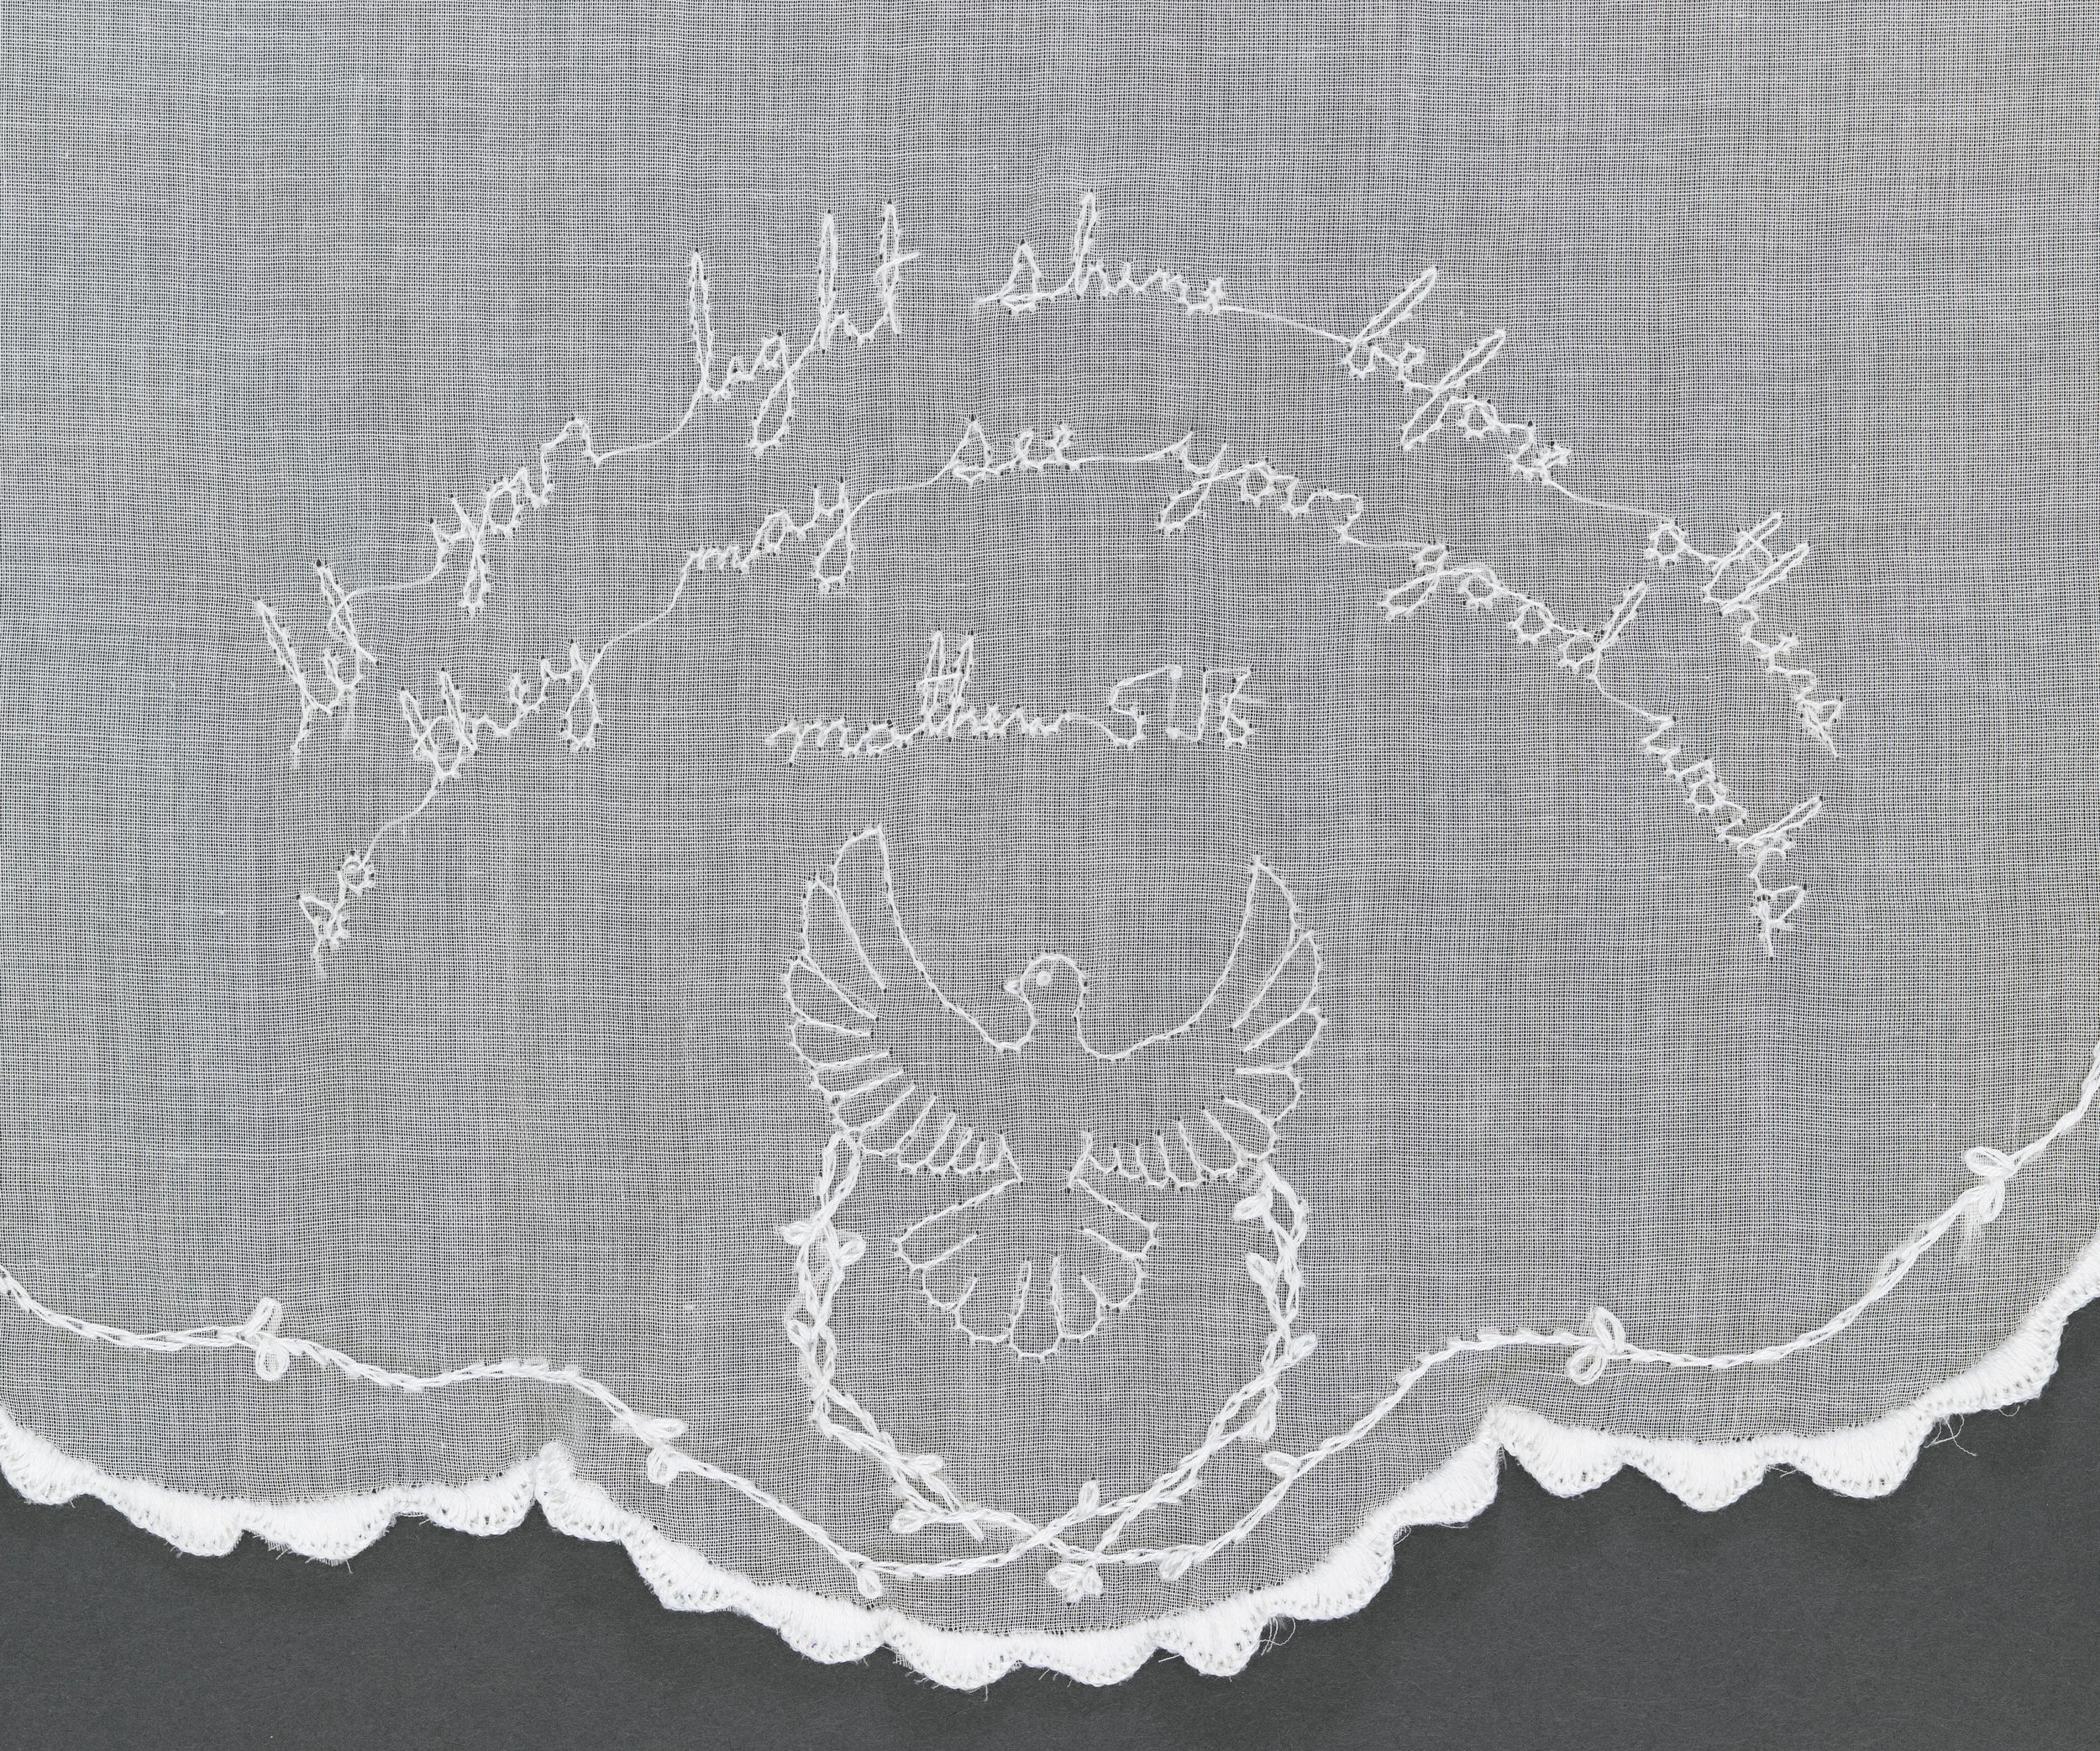 let your light shine before others
so they may see your good works
matthew 5 16